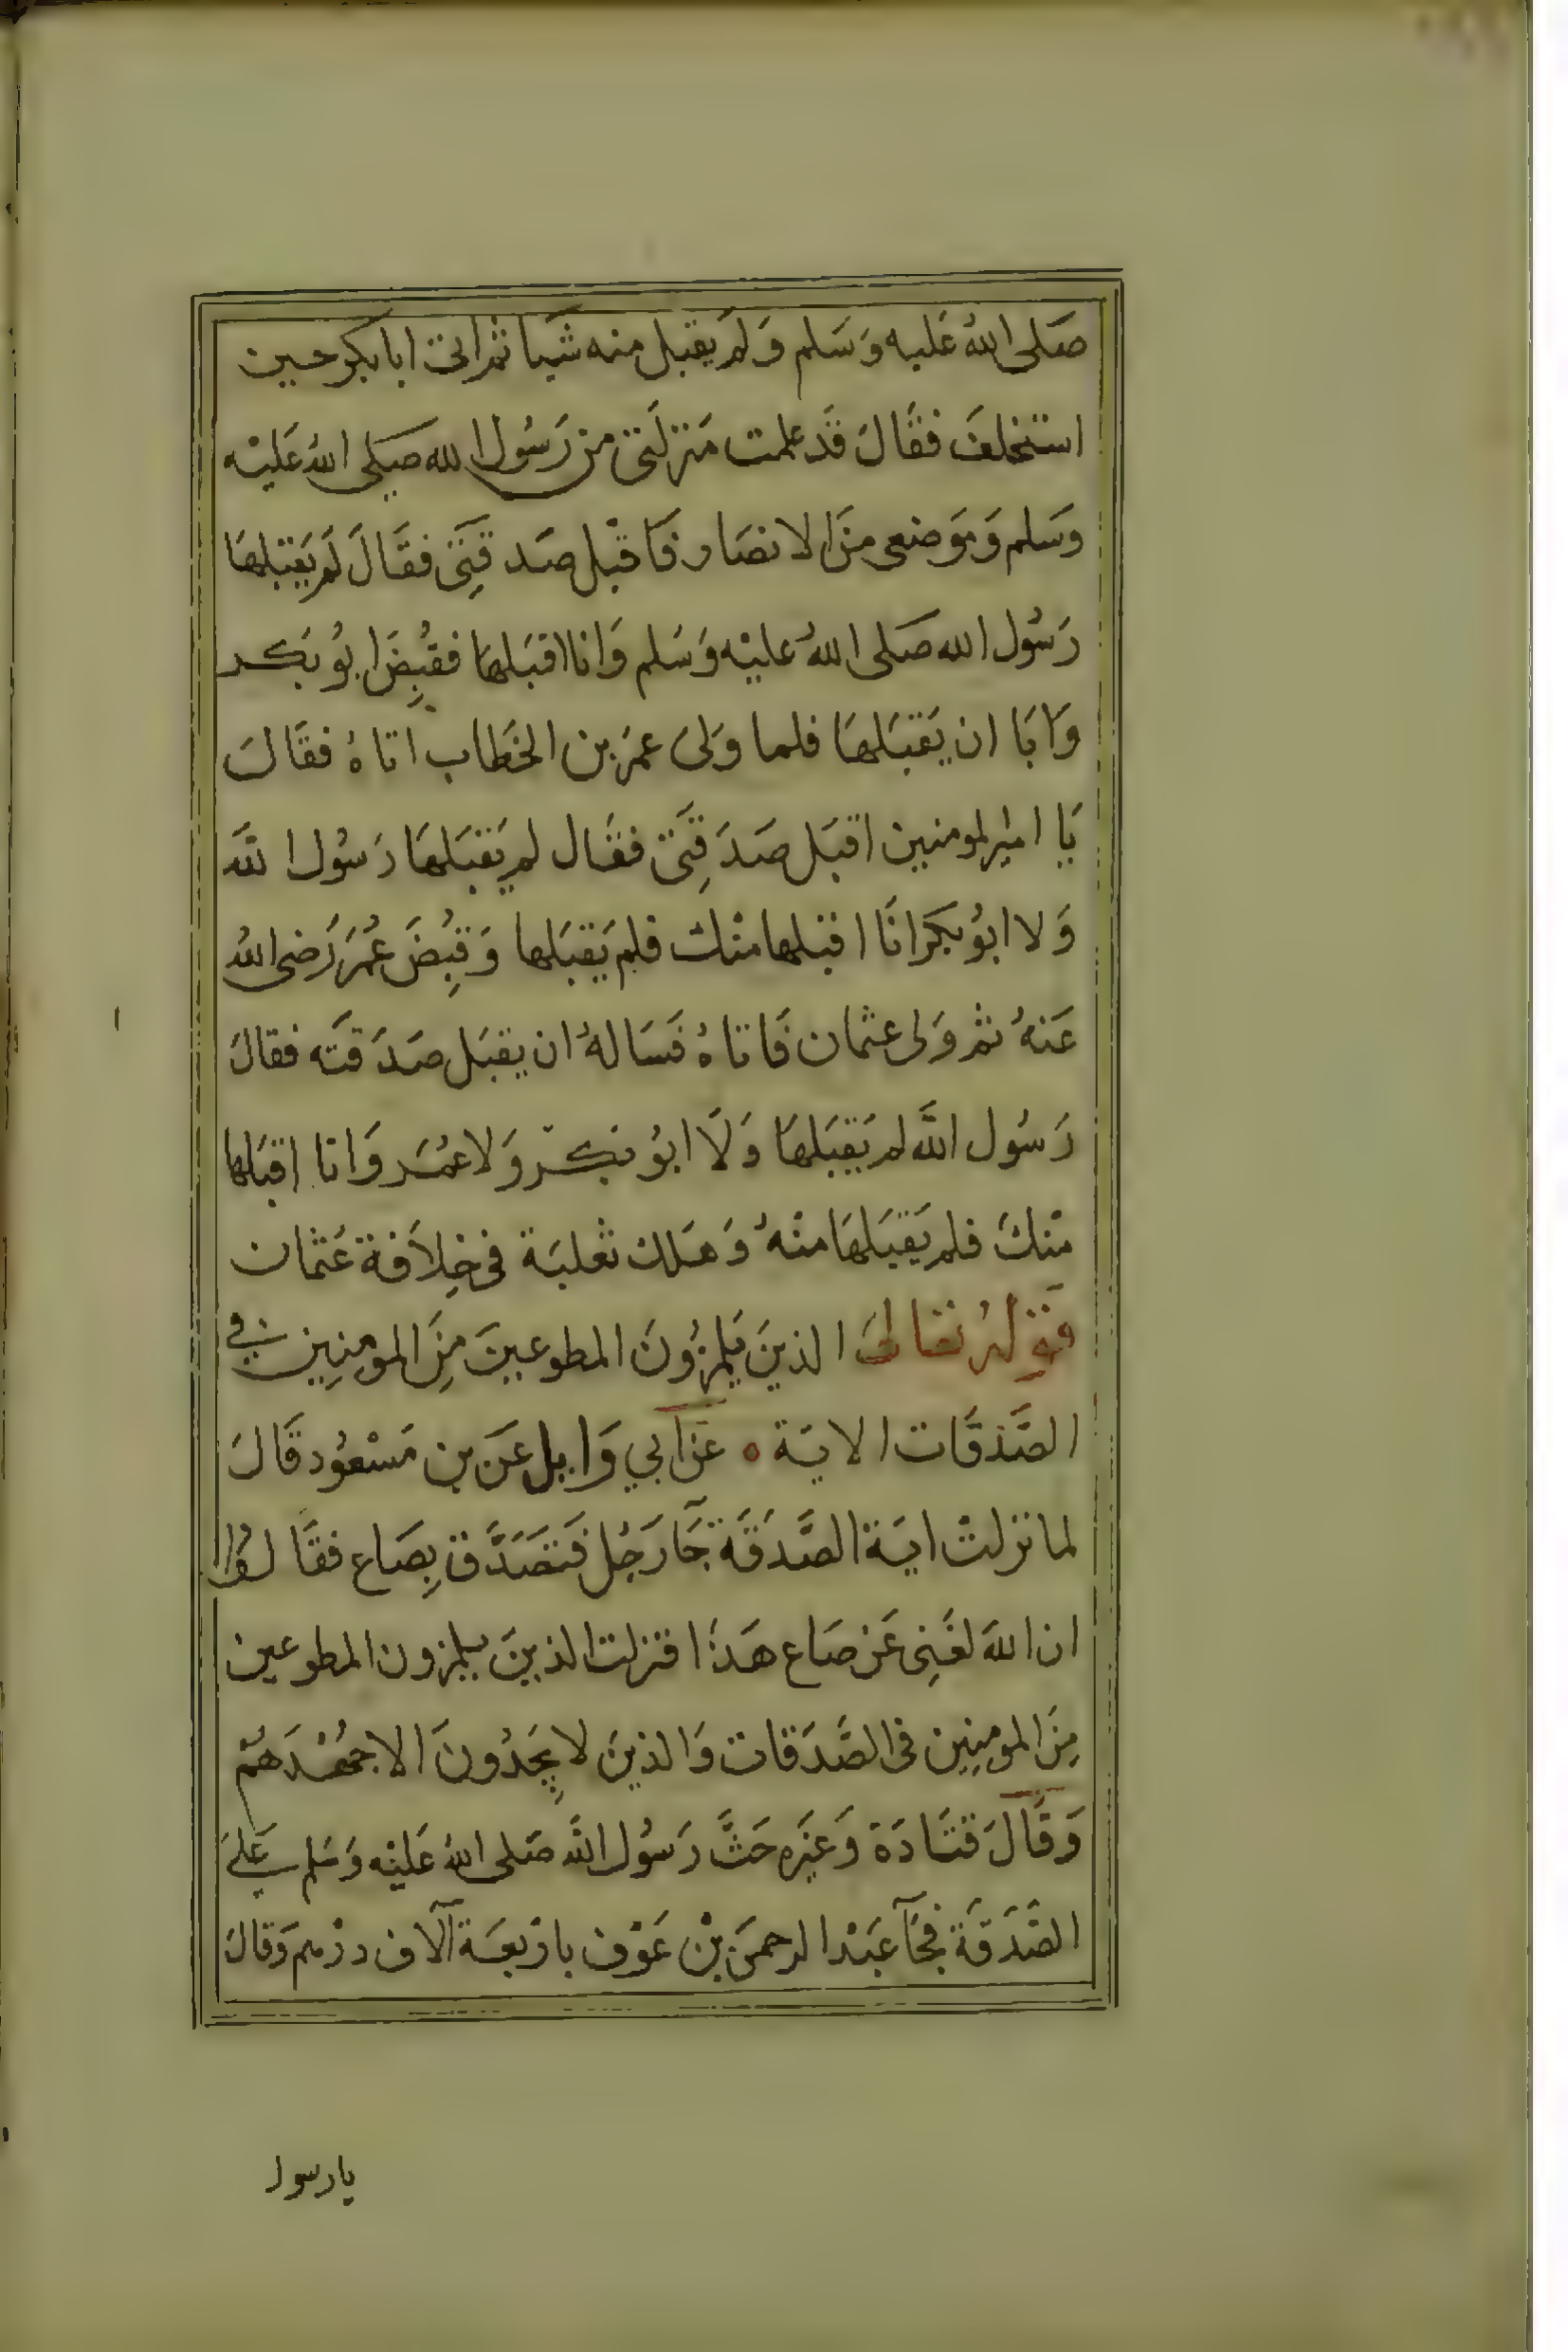 صَلى اللهُ عَليه وَسَلم وَلم يقبل منه شَيا ثمراتى ابا بكر حين
استخلفَ فقَالَ قَد علمت مَنزلَتى من رَسُول الله صَلى اللهُ عَليْه
وَسَلم وَمَوضعى مِنَ الانصَار فَاقْبل صَدقَتِى فقَالَ لَم يَقبَلهَا
رَسُول الله صَلى اللهُ عليْه وَسَلم وَانا اقبَلهَا فقُبِضَ ابوُ بَكر
وَابَا ان يَقبَلهَا فلما وَلىَ عمَر بن الخَطاب اتاهُ فقَالَ
يَا امير المومنين اقبَل صَدَقِتَى فقَال لم يَقبَلهَا رَسُول اللَّه
وَلا ابوُ بكرَ انَا اقبلها منْك فلم يَقبَلها وَقبِضَ عُمَر رَضى اللهُ
عَنهُ ثم وَلى عثمان فَاتاهُ فسَالهُ ان يقبَل صَدَقتَه فقالَ
رَسُول اللَّه لم يَقبَلهَا وَلَا ابوُ بكر وَلا عمُر وَانا اقبَلها
منْكَ فلم يَقبَلهَا منْهُ وَهَلك ثعلبَة فى خِلاَفة عَثمان
قَولهُ تعَالىَ الذينَ يَلمزُونَ المطوعينَ مِنَ المومِنِين فى
الصَّدقَات الايَة ٥ عَن ابي وَايل عَن بن مَسْعوُد قَالَ
لما نزلتْ ايَة الصَّدَقَة جَآ رَجُل فَتصَدَّق بِصَاع فقَالوُا
ان اللهَ لغَنِى عَن صَاع هَذَا فنزلت الذينَ يلمزون المطوعين
مِنَ المومِنِين فى الصَّدَقات وَالذينَ لا يجِدُونَ الا جهُدَهمُ
وَقَالَ قتَادَة وَغَيرَه حَثَّ رَسُول اللَّه صَلى اللهُ عَليْه وَسَلم عَلىَ
الصَّدَقَة فجَآ عَبْد الرحمَن بْن عَوْف بارْبعَة آلَاف درْهم وَقالَ
يارسول